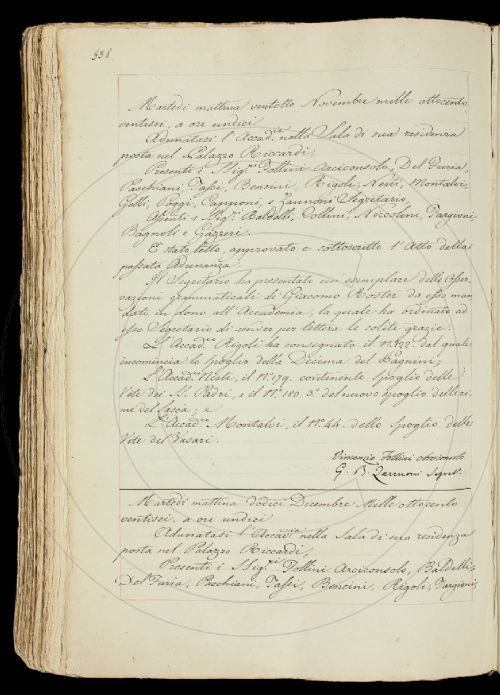 338
Martedì mattina ventotto Novembre mille ottocento
ventisei, a ore undici
Adunatasi l'Accad.ia nella Sala di sua residenza
posta nel Palazzo Riccardi,
Presenti i Sig.ri Follini Arciconsolo, Del Furia,
Pacchiani, Tassi, Bencini, Rigoli, Nesti, Montalvi,
Gelli, Poggi, Capponi, e Zannoni Segretario.
Assenti i Sig.ri Baldelli, Collini, Niccolini, Targioni,
Bagnoli e Gazzeri.
È stato letto, approvato e sottoscritto l'Atto della
passata Adunanza.
Il Segretario ha presentato un esemplare delle Osser
vazioni grammaticali di Giacomo Roster da esso man
dato in dono all'Accademia, la quale ha ordinato ad
esso Segretario di render per lettera le solite grazie.
L'Accad.co Rigoli ha consegnato il N. dal quale
incomincia lo spoglio della Decima del Pagnini;
L'Accad.co Nesti, il N. 179. contenente spoglio delle
Vite dei SS. Padri, e il N. 180. 3.° del nuovo spoglio delle ri
me del Lasca; e
L'Accad.co Montalvi, il N. 44. dello spoglio delle
Vite del Vasari.
Vincenzio Follini Arciconsolo
G. B. Zannoni Segret.
Martedì mattina dodici Decembre Mille ottocento
ventisei, a ore undici
Adunatasi l'Accad.ia nella Sala di sua residenza
posta nel Palazzo Riccardi,
Presenti i Sig.ri Follini Arciconsolo, Baldelli,
Del Furia, Pacchiani, Tassi, Bencini, Rigoli, Targioni,